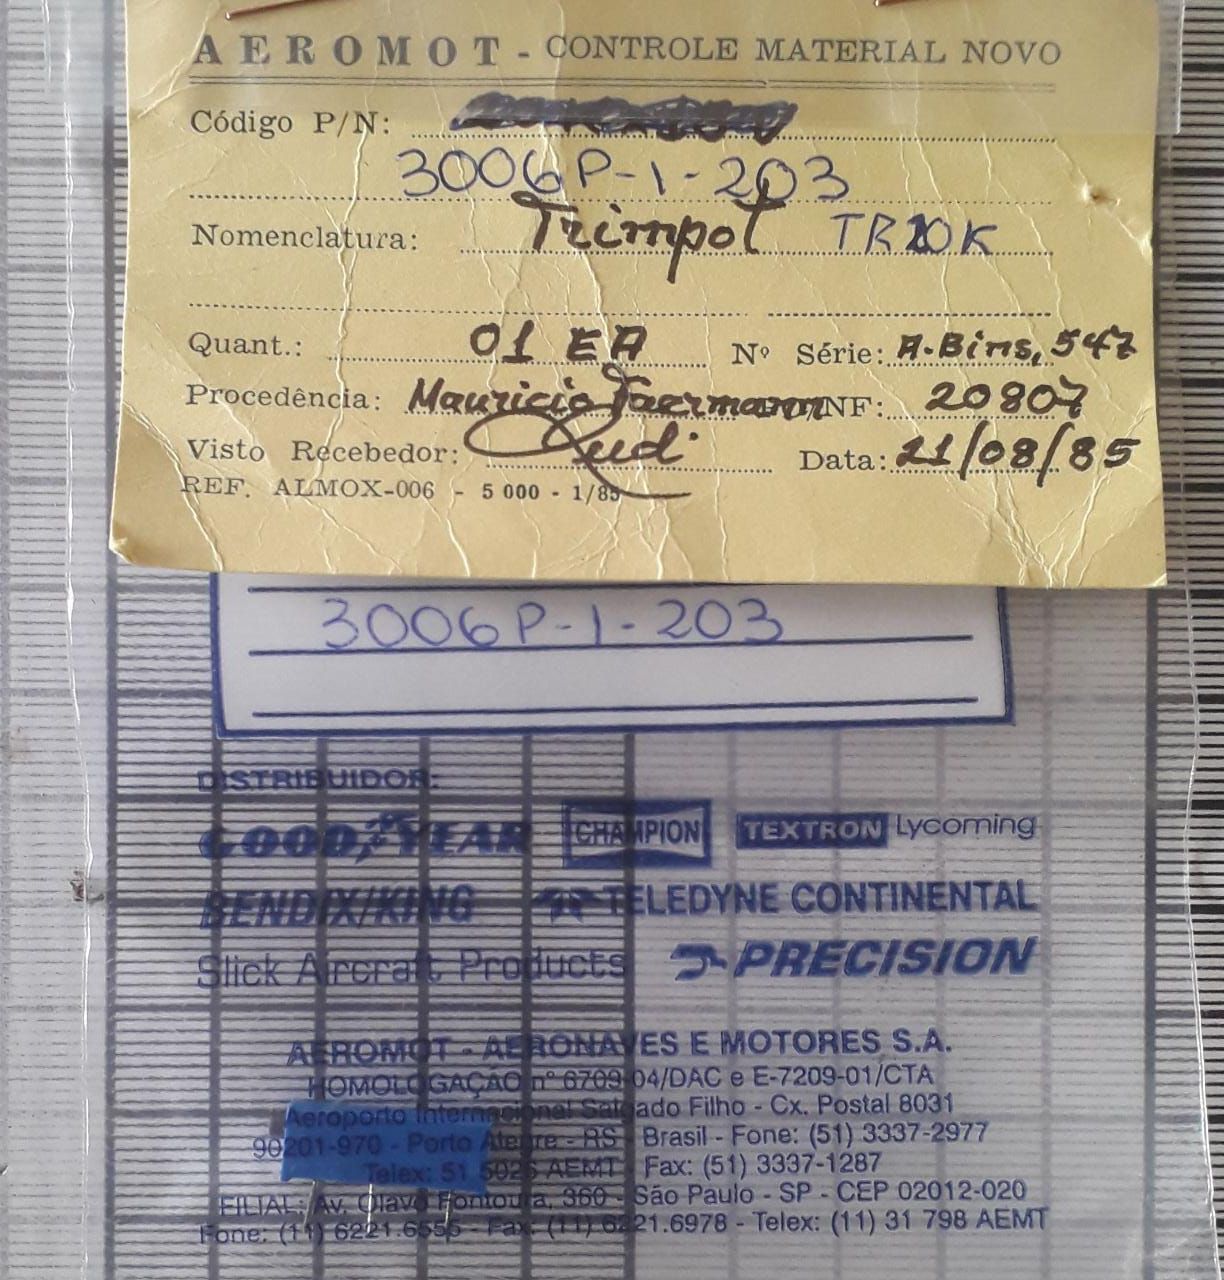 AEROMOT - CONTROLE MATERIAL NOVO
Código P/N:
3006P-1-203
Nomenclatura: Trimpot TR20K
Quant.: 01 EA Nº Série: A. Bins, 547
Procedência: Mauricio Faermann NF: 20807
Visto Recebedor: Data: 21/08/85
REF. ALMOX-006 - 5 000 - 1/85
3006P-1-203
DISTRIBUIDOR:
GOODYEAR CHAMPION TEXTRON Lycoming
BENDIX/KING TELEDYNE CONTINENTAL
Slick Aircraft Products PRECISION
AEROMOT - AERONAVES E MOTORES S.A.
HOMOLOGAÇÃO nº 6709-04/DAC e E-7209-01/CTA
Aeroporto Internacional Salgado Filho - Cx. Postal 8031
90201-970 - Porto Alegre - RS - Brasil - Fone: (51) 3337-2977
Telex: 51 5026 AEMT Fax: (51) 3337-1287
FILIAL: Av. Olavo Fontoura, 360 - São Paulo - SP - CEP 02012-020
Fone: (11) 6221.6555 - Fax: (11) 6221.6978 - Telex: (11) 31 798 AEMT